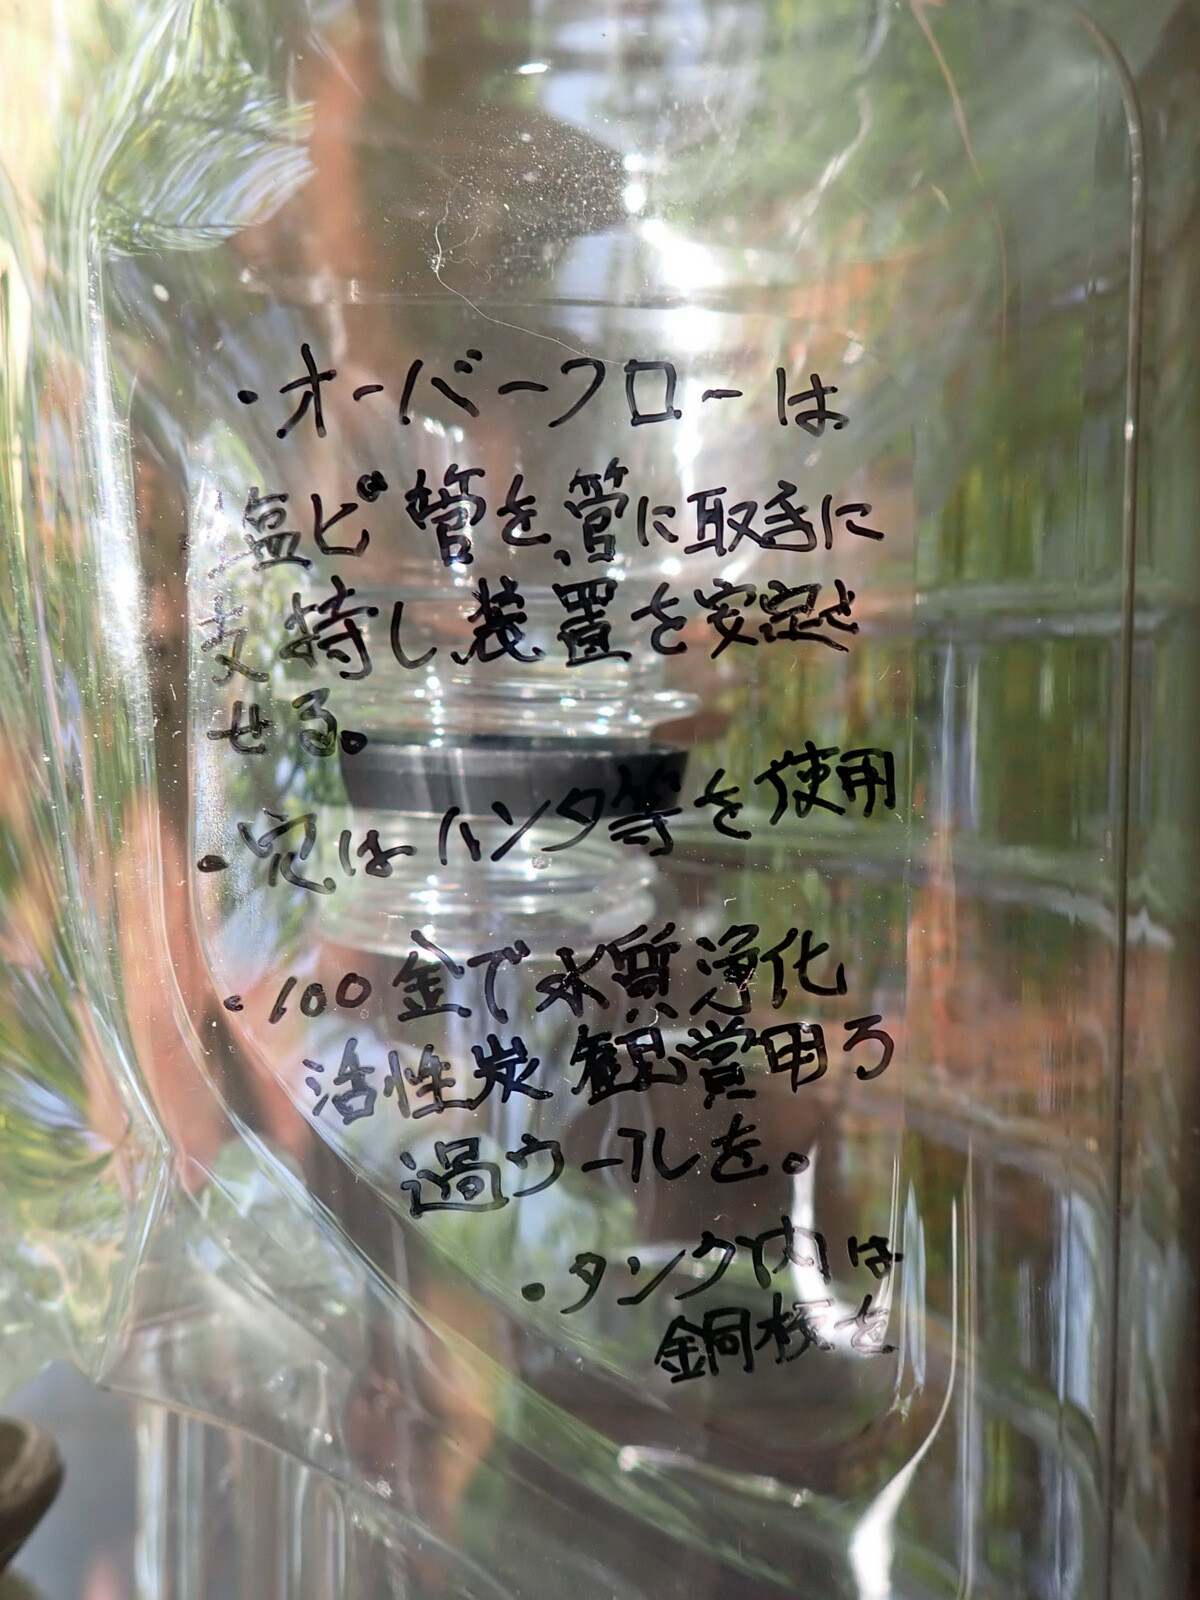 ・オーバーフローは
塩ビ管を、管に取手に
支持し、装置を安定さ
せる。
・穴はハンダ等を使用
・100金で水質浄化
活性炭 観賞用ろ
過ウールを。
・タンク内は
銅板を